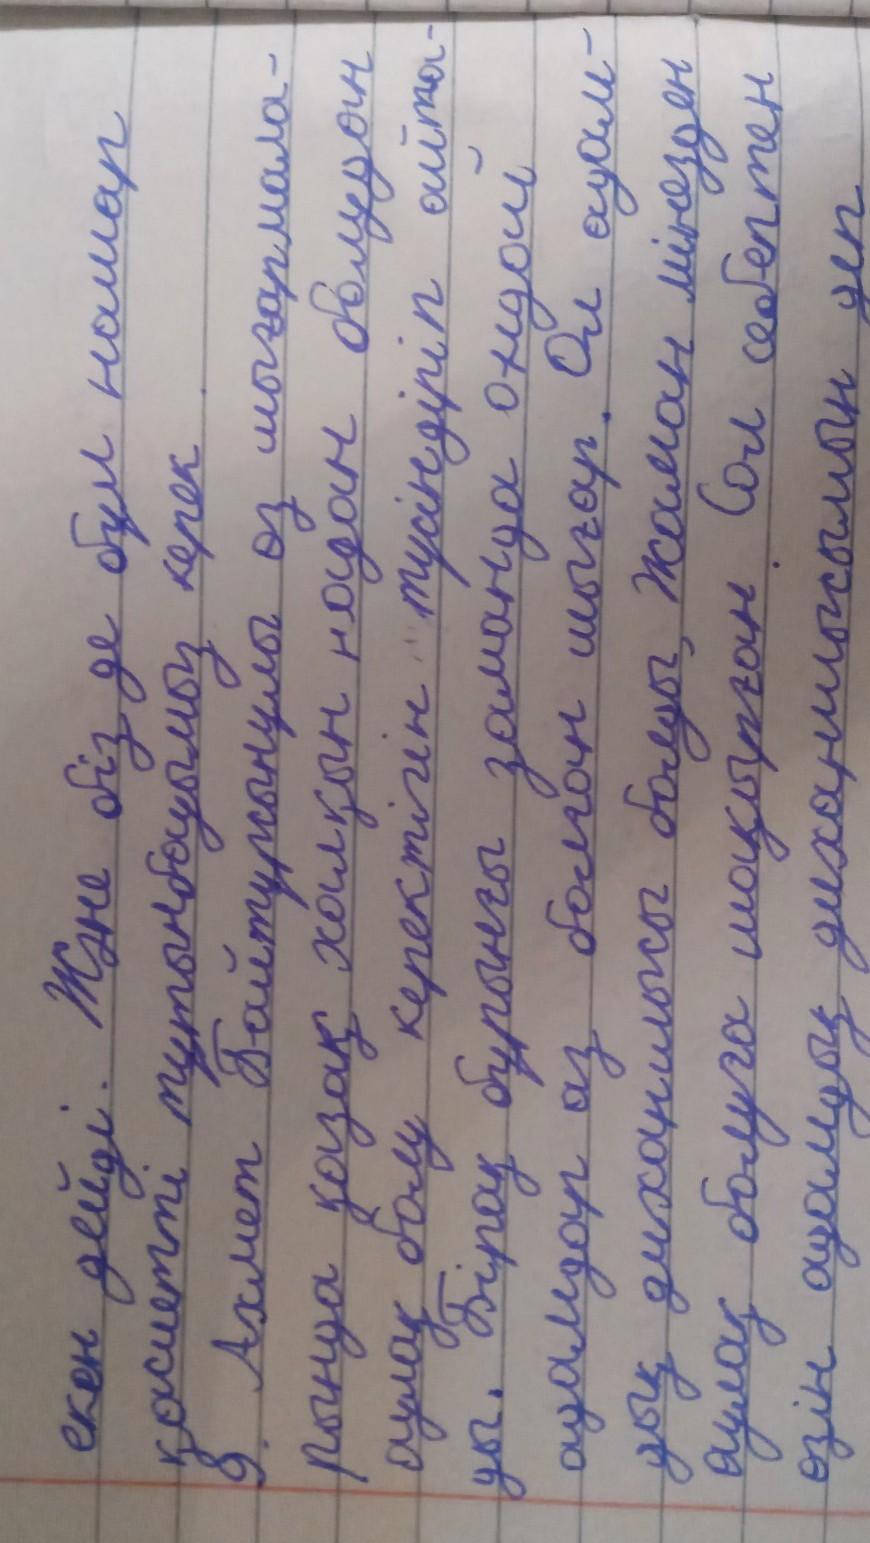 екен дейді. Және біз де бұл жаман
қасиетті тұтынбауымыз керек.
9. Ахмет Байтұрсынұлы өз шығармала-
рында қазақ халқын надан болудан
аулақ болу керектігін түсіндіріп айта-
ды. Бірақ бұрынғы заманда ондай
адамдар аз болған шығар. Ол адам-
дық диханшысы болуды, жаман мінезден
аулақ болуға шақырған. Сол себептен
өзін адамдық диханшысымын деп